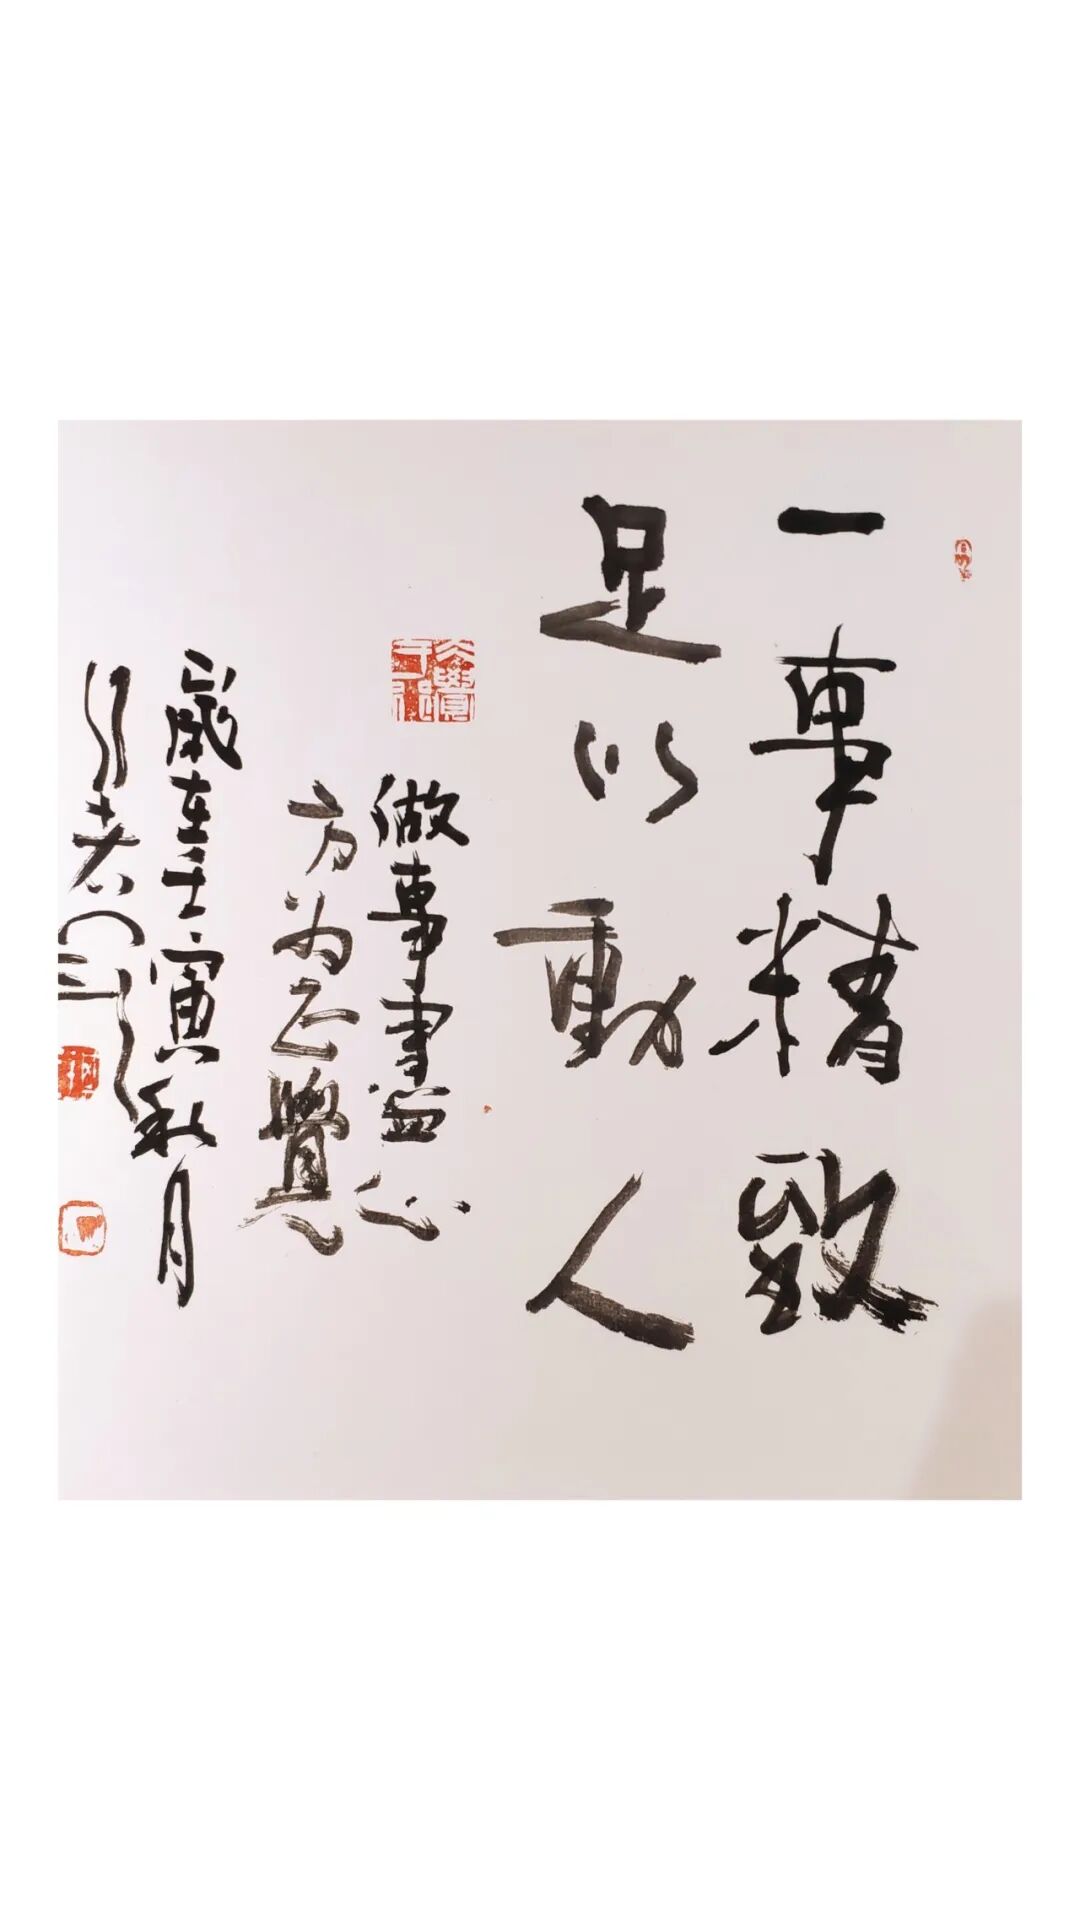 一事精致
足以動人
做事盡心
方为正覺
歲在壬寅秋月